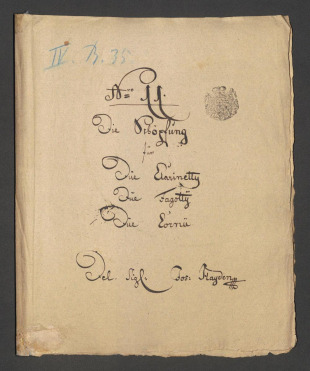 IV. B. 35
No 11.
Die Schöpfung
für
Due Clarinetty
Due Fagotty
Due Cornu
Del Sigl. Jos: Hayden